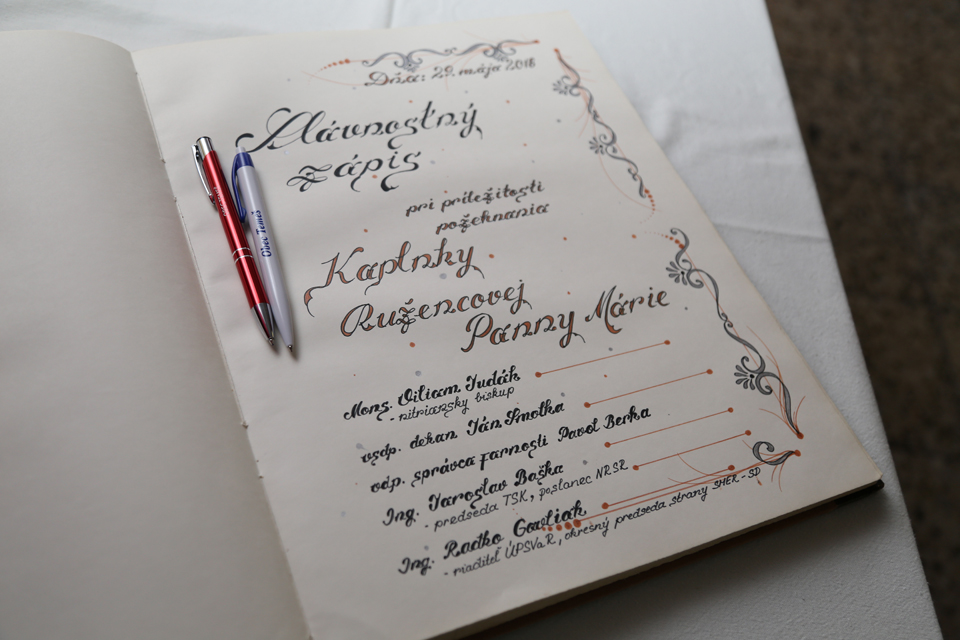 Dňa: 29. mája 2018
Slávnostný
zápis
pri príležitosti
požehnania
Kaplnky
Ružencovej
Panny Márie
Mons. Viliam Judák
- nitriansky biskup
vsdp. dekan Ján Smolka
odp. správca farnosti Pavol Berka
Ing. Jaroslav Baška
- predseda TSK, poslanec NRSR
Ing. Radko Gavliak
- riaditeľ ÚPSVaR, okresný predseda strany SMER-SD
Obec Temeš